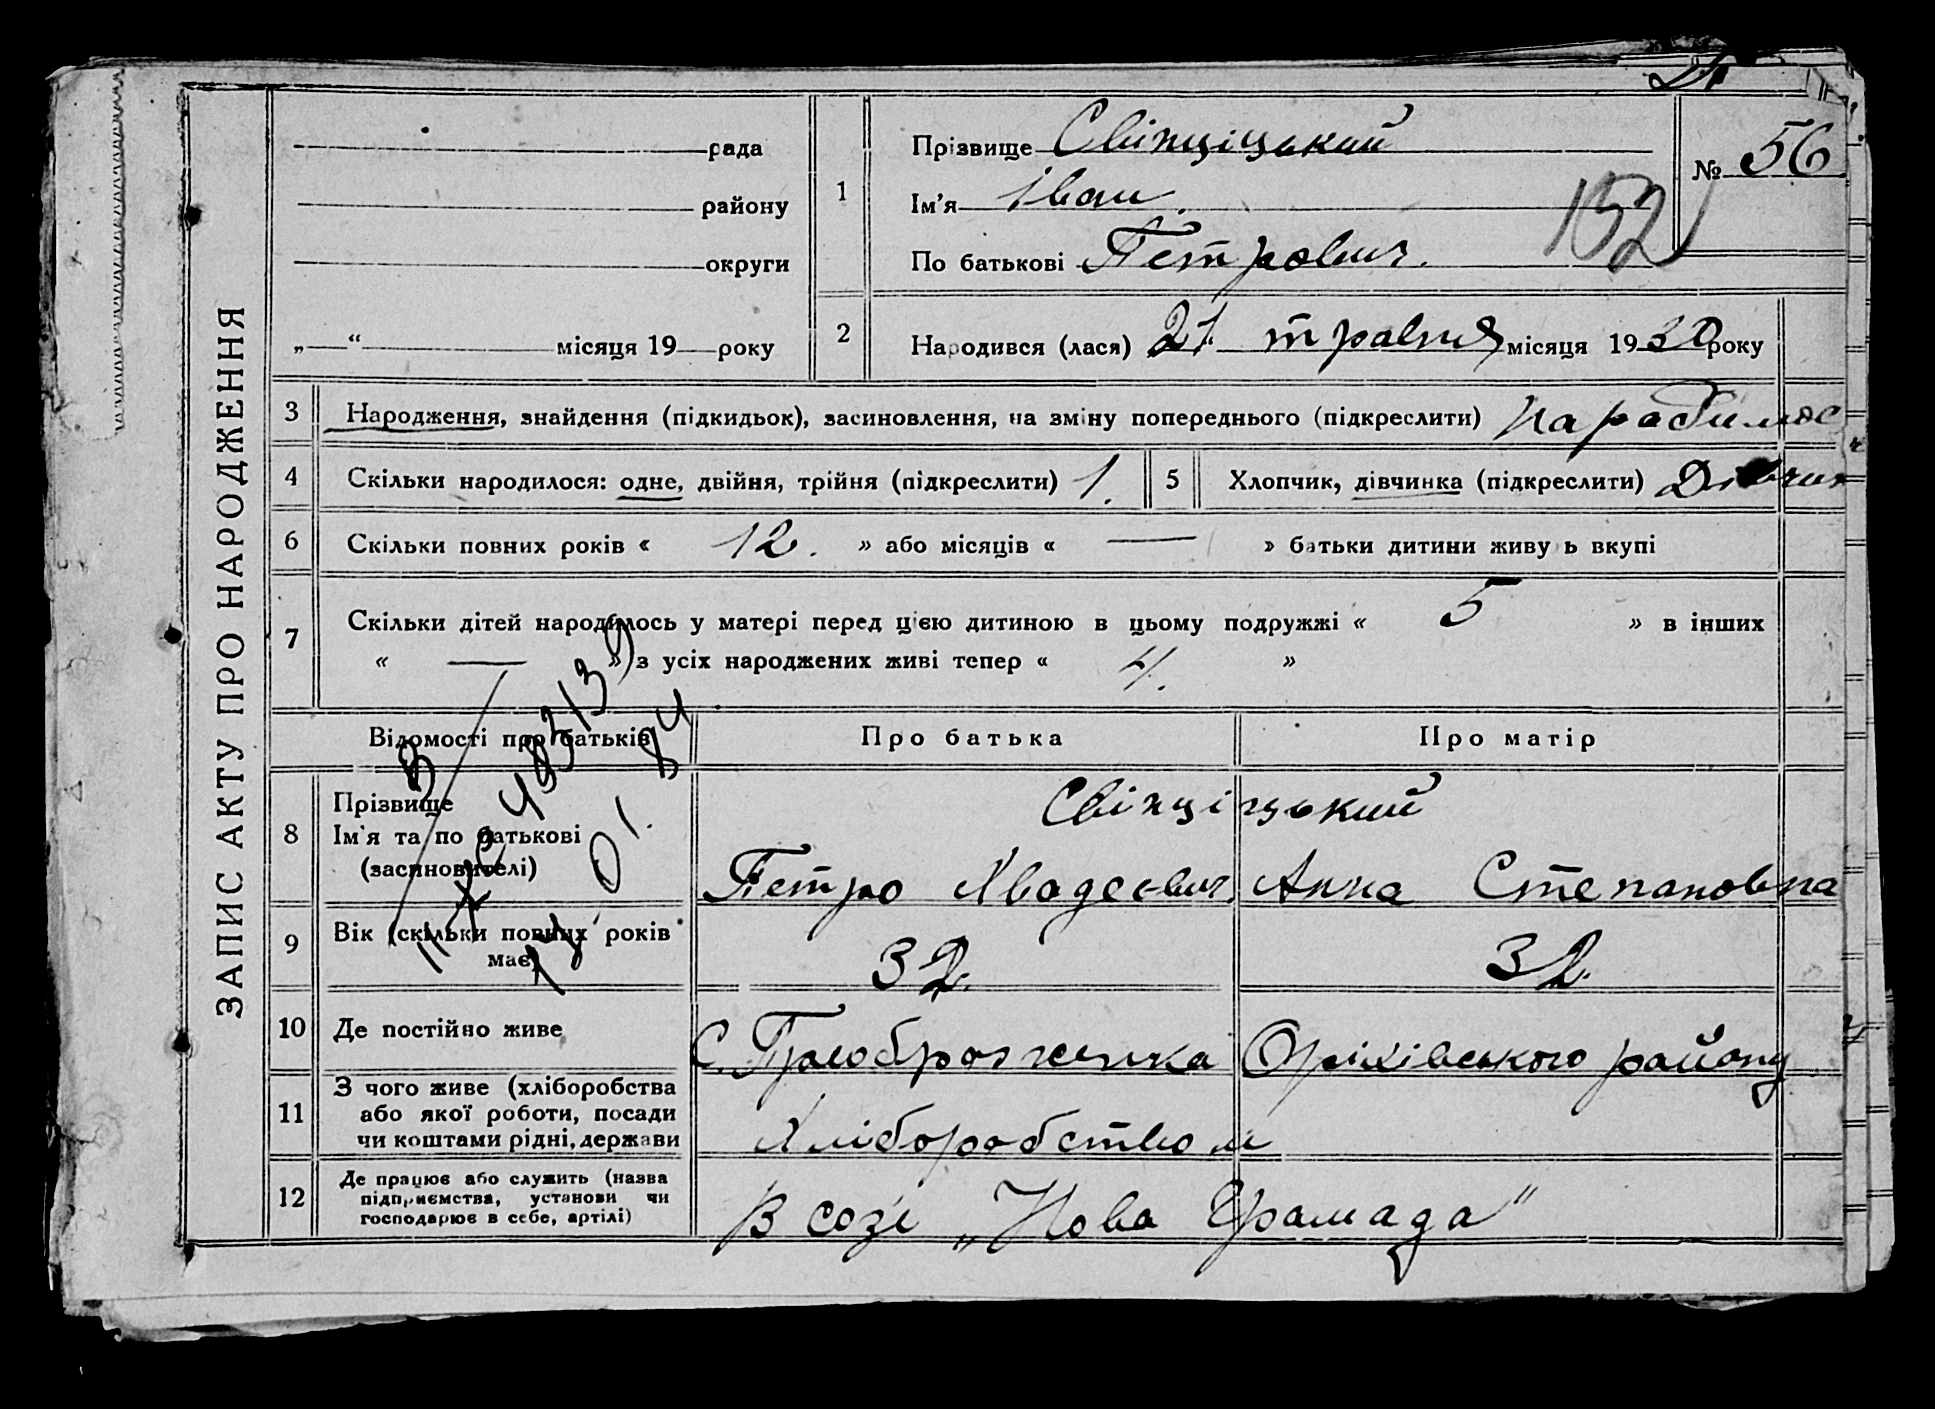 ЗАПИС АКТУ ПРО НАРОДЖЕННЯ
рада
району
округи
„ “ місяця 19 року
1
Прізвище Свінціцький
Ім'я Іван
По батькові Петрович.
№ 56
152
2
Народився (лася) 21 травня місяця 1930 року
3 Народження, знайдення (підкидьок), засиновлення, на зміну попереднього (підкреслити)
4 Скільки народилося: одне, двійня, трійня (підкреслити) 1.
5 Хлопчик, дівчинка (підкреслити)
6 Скільки повних років « 12. » або місяців « — » батьки дитини живуть вкупі
7 Скільки дітей народилось у матері перед цією дитиною в цьому подружжі « 5 » в інших
« — » з усіх народжених живі тепер « 4. »
Відомості про батьків
Про батька
Про матір
8 Прізвище
Ім'я та по батькові
(засиновителі)
Свінціцький
Петро
Анна Степановна
9 Вік (скільки повних років
має)
32.
32.
10 Де постійно живе
С. Преображенка Оріхівського району
11 З чого живе (хліборобства
або якої роботи, посади
чи коштами рідні, держави
Хліборобством
12 Де працює або служить (назва
підприємства, установи чи
господарює в себе, артілі)
В созі „Нова Громада"